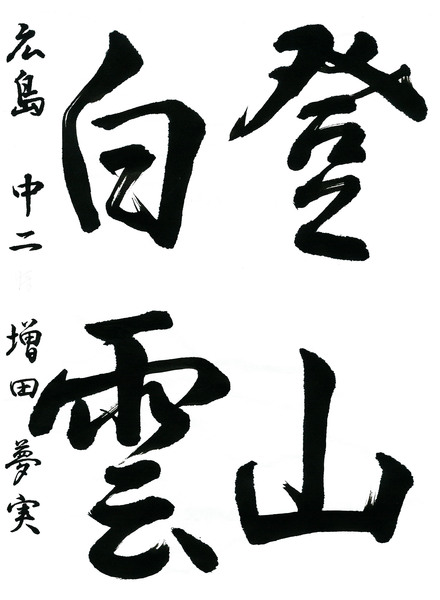 登山
白雲
広島 中二 増田 夢実